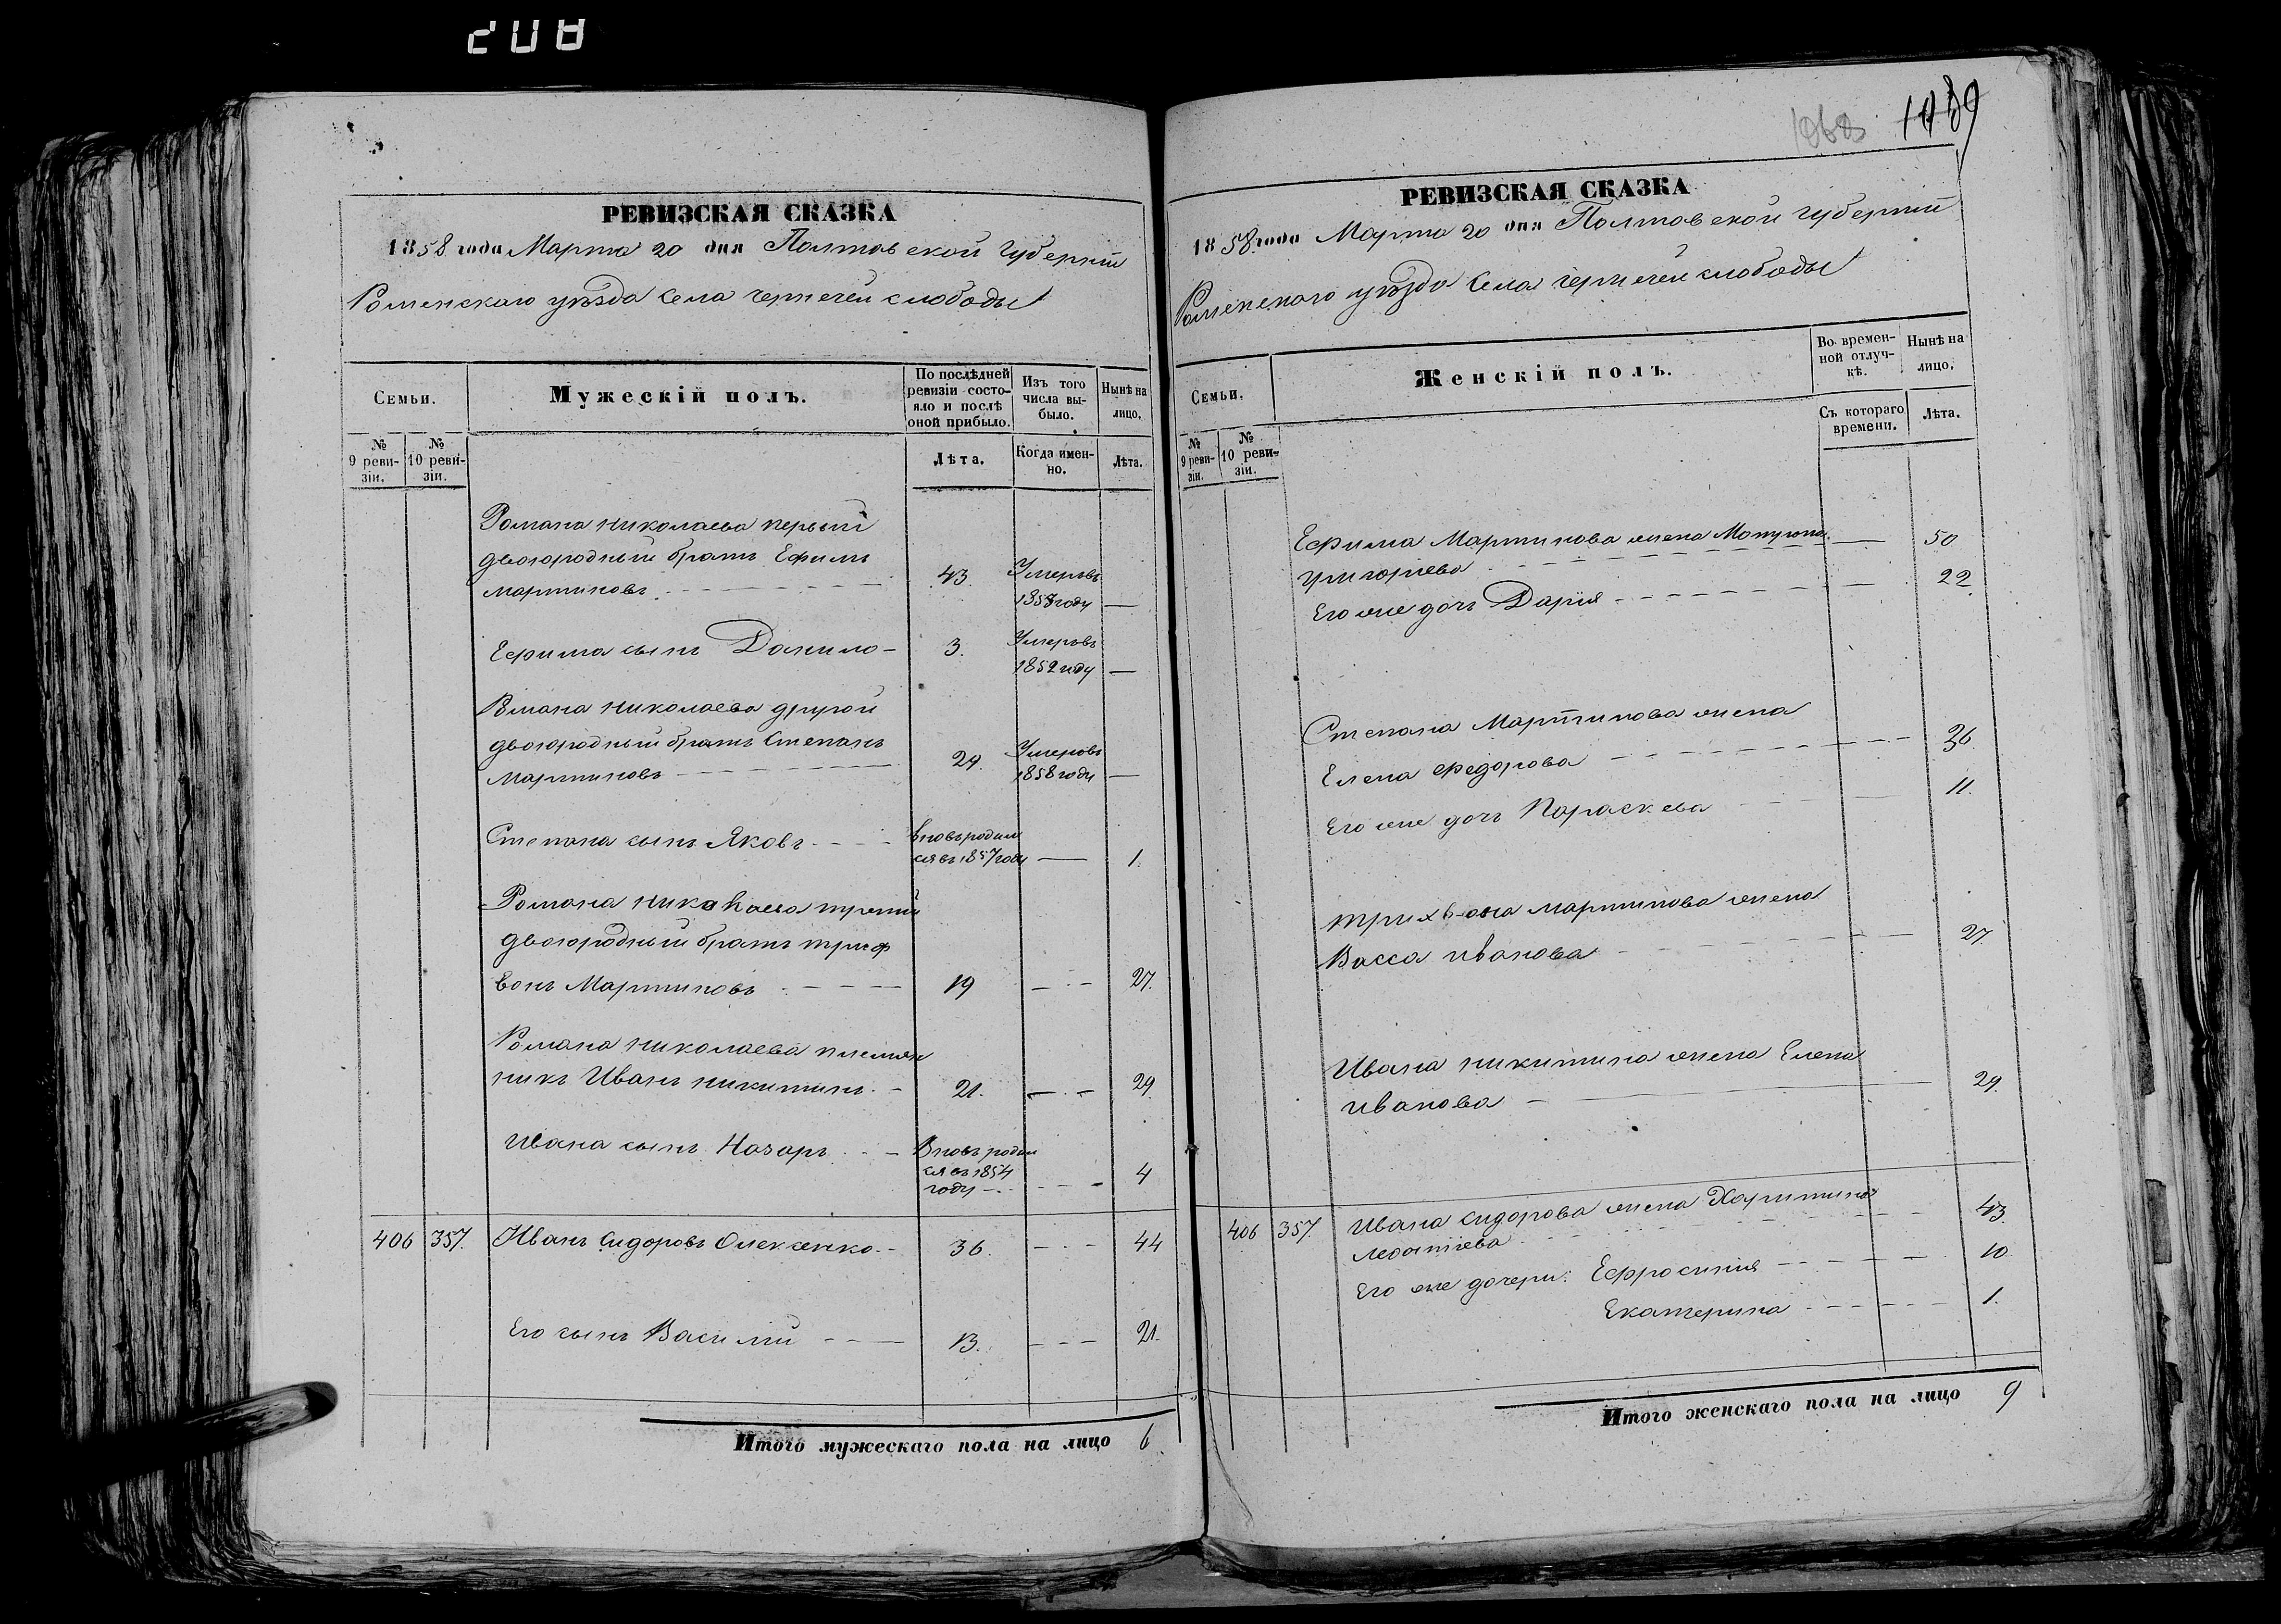 208
РЕВИЗСКАЯ СКАЗКА
1858 года Марта 20 дня Полтавской Губерніи
Роменскаго уѣзда Села Чернечей слободы
Семьи.
Мужескій полъ.
По послѣдней ревизіи состояло и послѣ оной прибыло.
Изъ того числа выбыло.
Нынѣ на лицо.
№ 9 ревизіи.
№ 10 ревизіи.
Лѣта.
Когда именно.
Лѣта.
Романа николаева первый
двоюродный братъ Ефимъ
мартиновъ 43 Умеръ въ
году —
Ефима сынъ Данило 3. Умеръ въ
1852 году —
николаева другой
двоюродный братъ Степанъ
Мартиновъ 24. Умеръ въ
1858 году —
Степана сынъ Яковъ вновь родил
ся въ 1857 году — 1.
Романа николаева третій
двоюродный братъ триф
вонъ Мартиновъ 19 — 27.
Романа николаева племян
никъ Иванъ никитинъ 21. — 29.
Ивана сынъ Назаръ Вновь родил
ся въ 1854
году — 4
406 357. Иванъ Сидоровъ Олексенко 36. — 44
Его сынъ Василій 13. — 21.
Итого мужескаго пола на лицо 6.
1068
РЕВИЗСКАЯ СКАЗКА
1858 года Марта 20 дня Полтавской губерніи
Роменскаго уѣзда Села Чернечей слободы
Семьи.
Женскій полъ.
Во временной отлучкѣ.
Нынѣ на лицо.
№ 9 ревизіи.
№ 10 ревизіи.
Съ котораго времени.
Лѣта.
Ефима Мартинова жена — 50
григорьева
Его же дочь Дарія — 22
Степана Мартинова жена
Елена федорова — 36
Его же дочь Параскева — 11.
мартинова жена
Васса иванова — 27.
Ивана никитина жена Елена
иванова — 29.
406 357. Ивана Сидорова жена Харитина 43.
Его же дочери: Ефросинія 10
Екатерина 1.
Итого женскаго пола на лицо 9